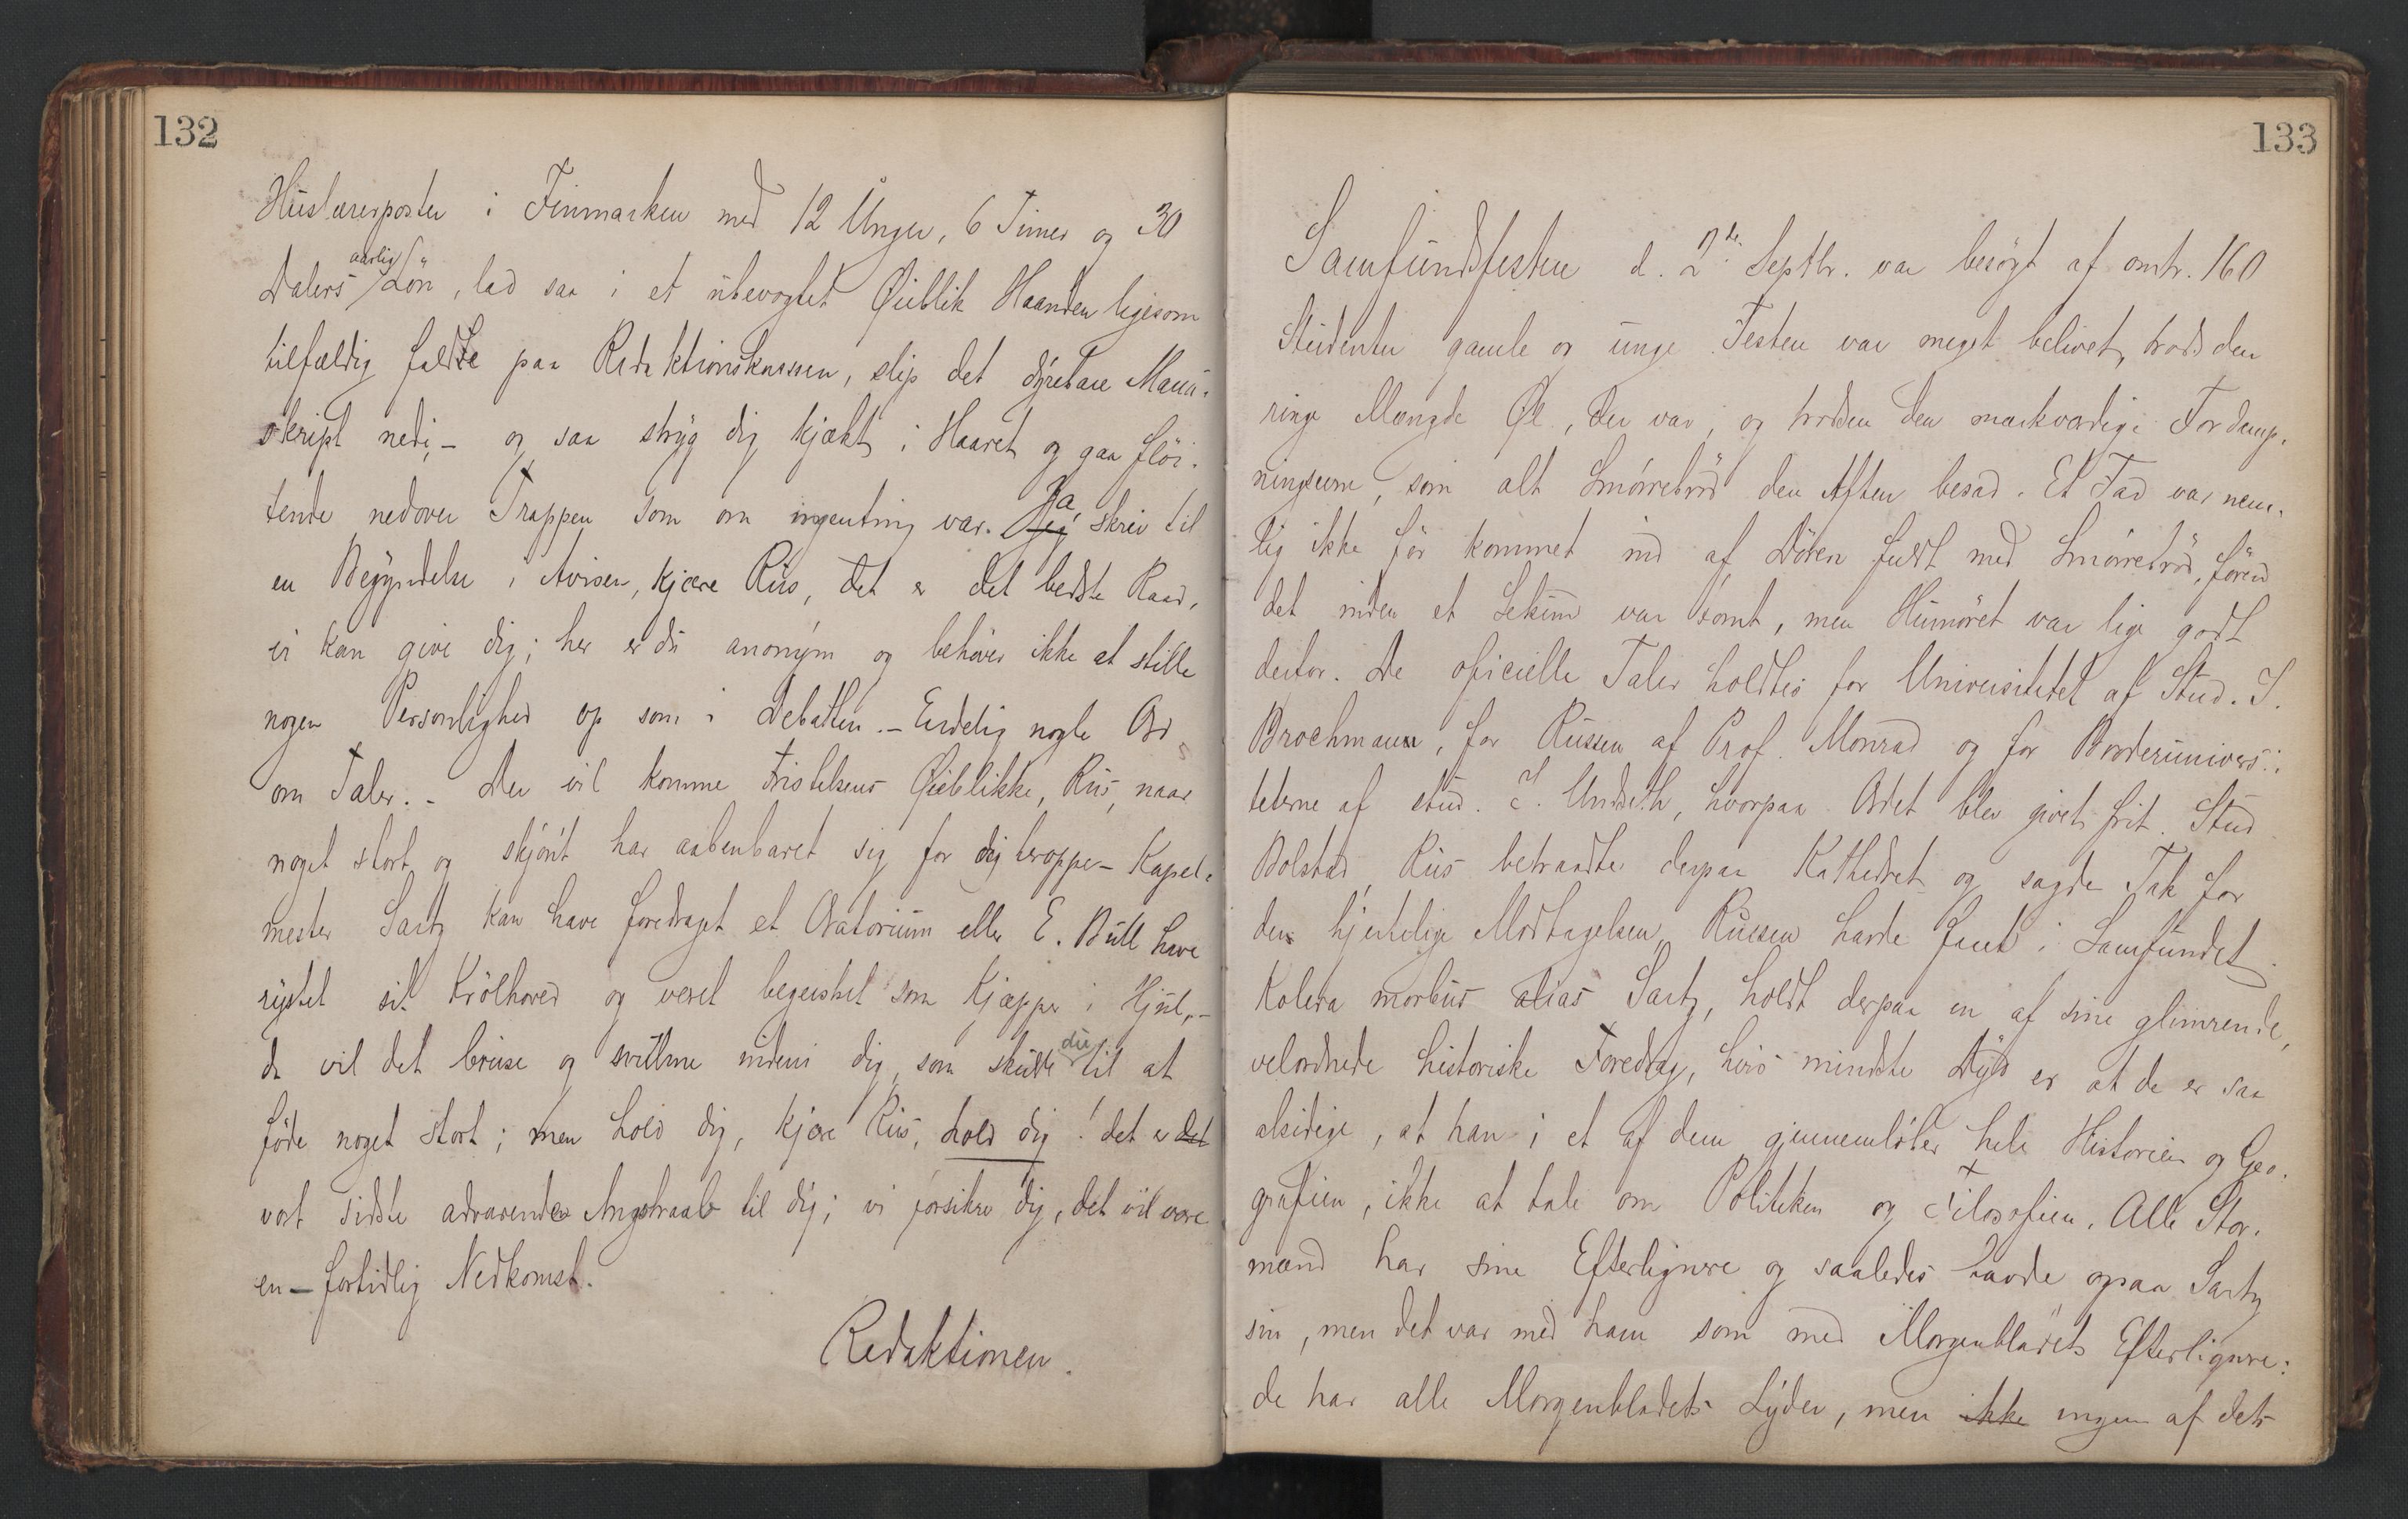 132
Huslærerposter i Finmarken med 12 Unger, 6 Timer og 30
Dalers aarlig Løn, lad saa i et ubevogtet Øieblik Haanden ligesom
tilfældig falde paa Redaktionskassen, slip det dyrebare Manu-
skript nedi, – og saa stryg dig kjækt i Haaret og gaa fløi-
tende nedover Trappen som om ingenting var. Ja, skriv til
en Begyndelse i Avisen, kjære Rus, det er det bedste Raad,
vi kan give dig; her er du anonym og behøver ikke at stille
nogen Personlighed op som i Debatten. – Endelig nogle Ord
om Taler. – Der vil komme Fristelsens Øieblikke, Rus, naar
noget stort og skjønt har aabenbaret sig for dig heroppe – Kapel-
mester Sartz kan have foredraget et Oratorium eller E. Bull have
rystet sit Krølhoved og været begeistret som Kjæpper i Hjul, –
da vil det bruse og svulme indeni dig, som skulde du til at
føde noget stort; men hold dig, kjære Rus, hold dig! det er det
vort sidste advarende Angstraab til dig; vi forsikre dig, det vil være
en – fortidlig Nedkomst.
Redaktionen.
133
Samfundsfesten d. 2de Septbr. var besøgt af omtr. 160
Studenter gamle og unge. Festen var meget belivet, trods den
ringe Mængde Øl, der var, og trods den den mærkværdige Fordamp-
ningsevne, som alt Smørrebrød den Aften besad. Et Fad var nem-
lig ikke før kommet ind af Døren fuldt med Smørrebrød, førend
det inden et Sekund var tomt, men Humøret var lige godt
derfor. De oficielle Taler holdtes for Universitetet af Stud. J.
Brochmann, for Russen af Prof. Monrad og for Broderuniversi-
teterne af stud. J. Undseth, hvorpaa Ordet blev givet frit. Stud
Bolstad, Rus betraadte derpaa Kathedret og sagde Tak for
den hjertelige Modtagelsen, Russen havde faaet i Samfundet.
Kolera morbus alias Sartz, holdt derpaa en af sine glimrende,
velordnede historiske Foredrag, hvis mindste Dyd er at de er saa
alsidige, at han i et af dem gjennemløber hele Historien og Geo-
grafien, ikke at tale om Politiken og Filosofien. Alle Stor-
mænd har sine Efterlignere og saaledes havde ogsaa Sartz
sin, men det var med ham som med Morgenbladets Efterlignere:
de har alle Morgenbladets Lyder, men ikke ingen af dets